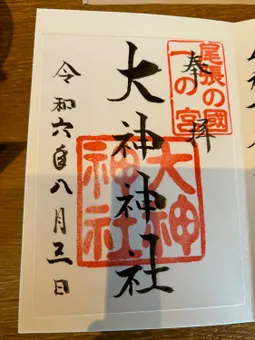 尾張の國
一の宮
奉拝
大神神社
大神
神社
令和六年八月三日